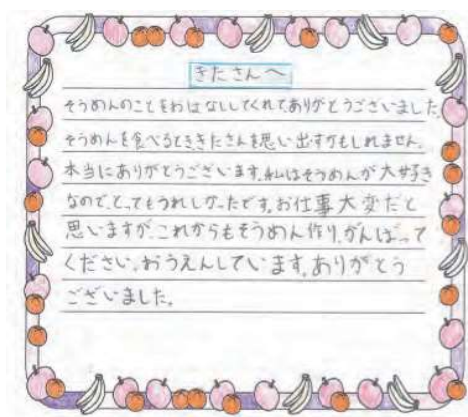 きたさんへ
そうめんのことをおはなししてくれてありがとうございました。
そうめんを食べるとききたさんを思い出すかもしれません。
本当にありがとうございます。私はそうめんが大好き
なので、とってもうれしかったです。お仕事大変だと
思いますが、これからもそうめん作り、がんばって
ください。おうえんしています。ありがとう
ございました。